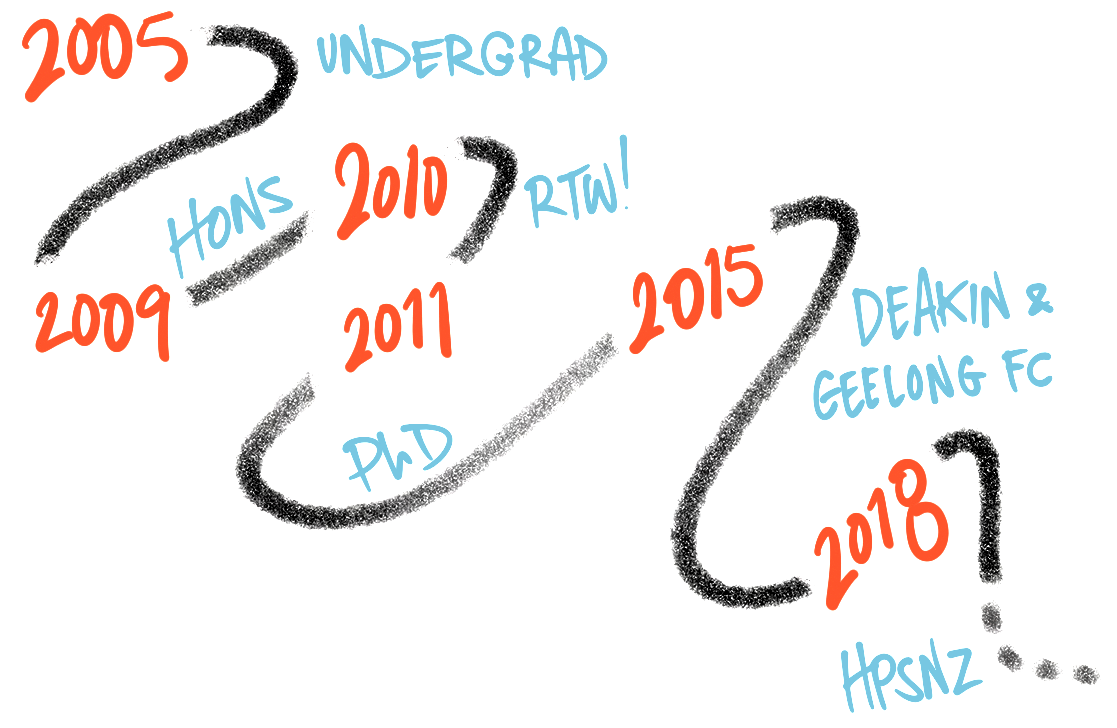 2005
UNDERGRAD
HONS
2009
2010
RTW!
2011
PhD
2015
DEAKIN &
GEELONG FC
2018
HPSNZ